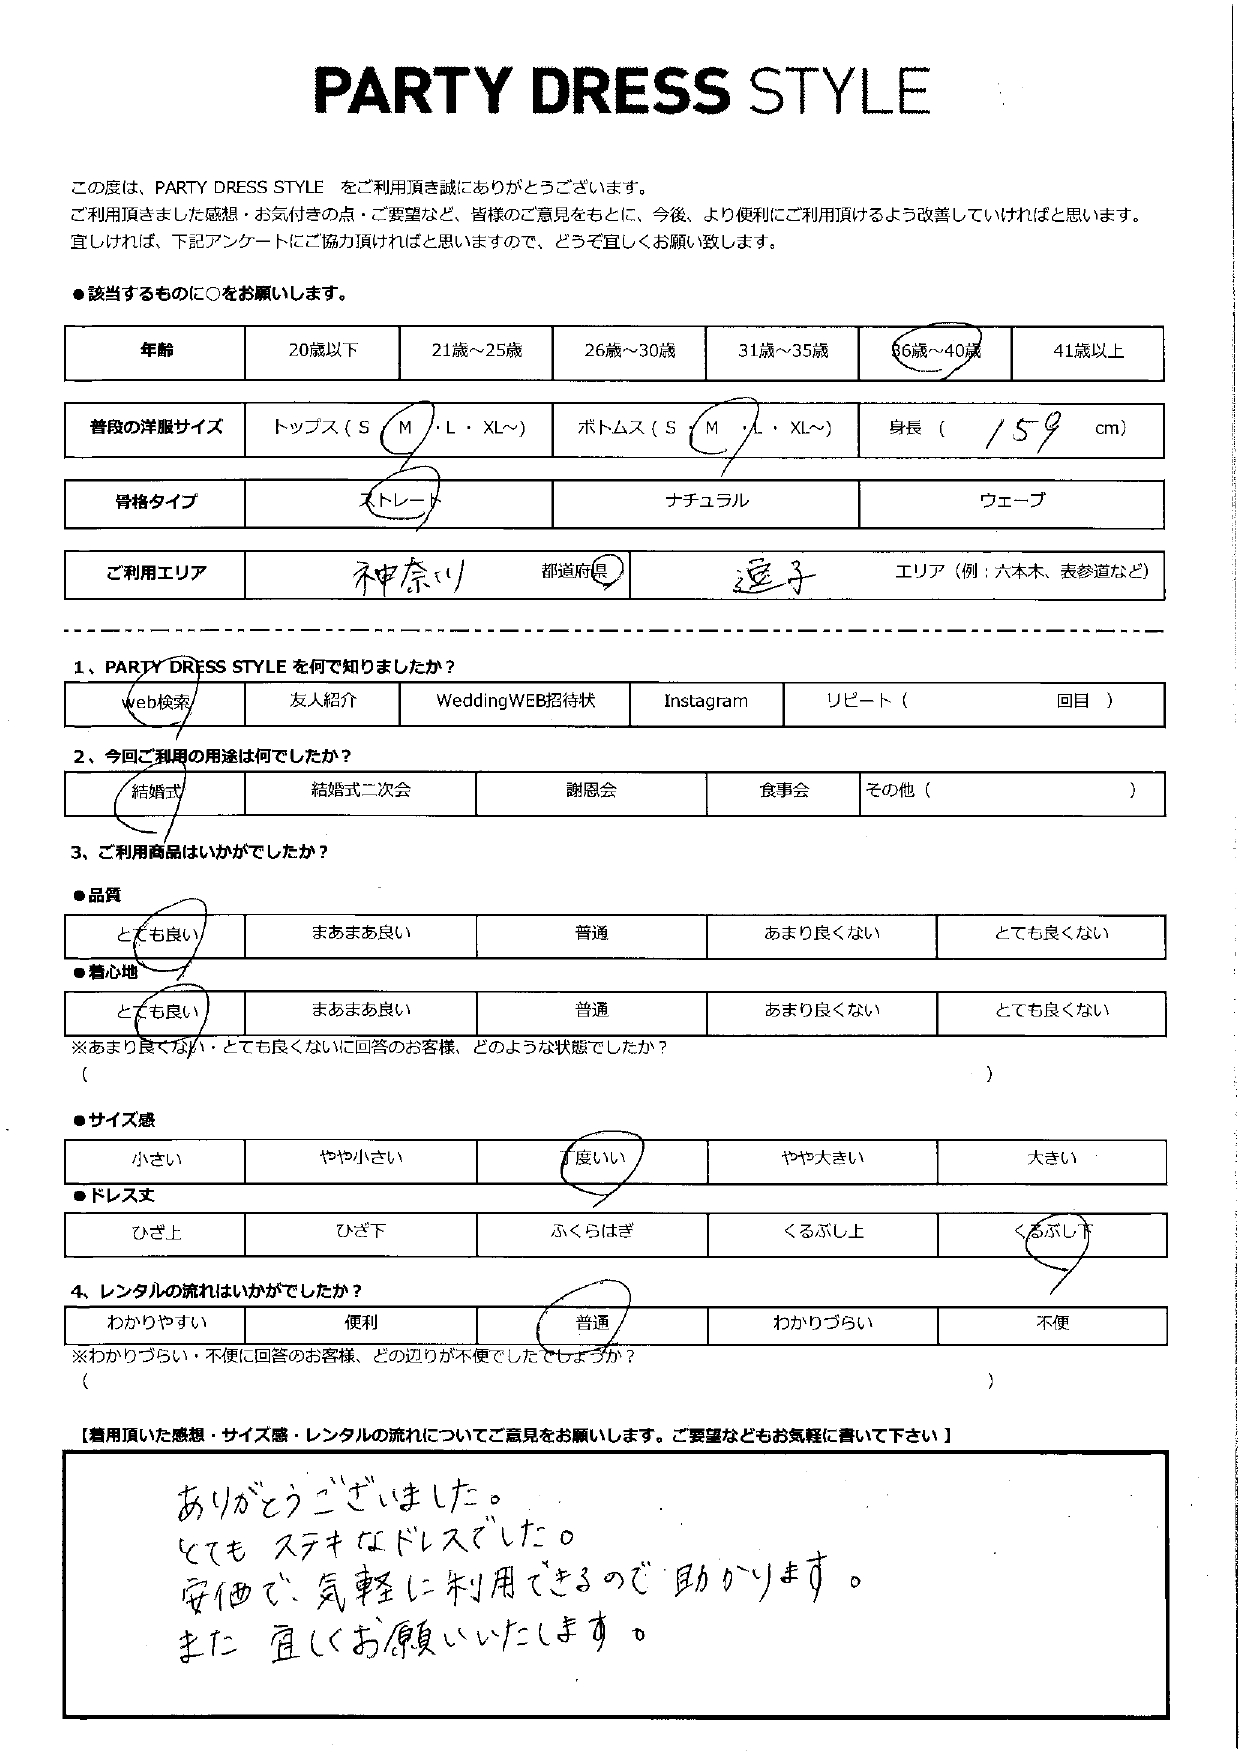 PARTY DRESS STYLE
この度は、PARTY DRESS STYLE をご利用頂き誠にありがとうございます。
ご利用頂きました感想・お気付きの点・ご要望など、皆様のご意見をもとに、今後、より便利にご利用頂けるよう改善していければと思います。
宜しければ、下記アンケートにご協力頂ければと思いますので、どうぞ宜しくお願い致します。
●該当するものに○をお願いします。
年齢 20歳以下 21歳～25歳 26歳～30歳 31歳～35歳 36歳～40歳 41歳以上
普段の洋服サイズ トップス ( S ・ M ・ L ・ XL～) ボトムス ( S ・ M ・ L ・ XL～) 身長 ( 159 cm)
骨格タイプ ストレート ナチュラル ウェーブ
ご利用エリア 神奈川 都道府県 逗子 エリア（例：六本木、表参道など）
1、PARTY DRESS STYLE を何で知りましたか？
web検索 友人紹介 WeddingWEB招待状 Instagram リピート（ 回目 ）
2、今回ご利用の用途は何でしたか？
結婚式 結婚式二次会 謝恩会 食事会 その他（ ）
3、ご利用商品はいかがでしたか？
●品質
とても良い まあまあ良い 普通 あまり良くない とても良くない
●着心地
とても良い まあまあ良い 普通 あまり良くない とても良くない
※あまり良くない・とても良くないに回答のお客様、どのような状態でしたか？
（ ）
●サイズ感
小さい やや小さい 丁度いい やや大きい 大きい
●ドレス丈
ひざ上 ひざ下 ふくらはぎ くるぶし上 くるぶし下
4、レンタルの流れはいかがでしたか？
わかりやすい 便利 普通 わかりづらい 不便
※わかりづらい・不便に回答のお客様、どの辺りが不便でしたでしょうか？
（ ）
【着用頂いた感想・サイズ感・レンタルの流れについてご意見をお願いします。ご要望などもお気軽に書いて下さい】
ありがとうございました。
とても ステキなドレスでした。
安価で、気軽に利用できるので助かります。
また 宜しくお願いいたします。